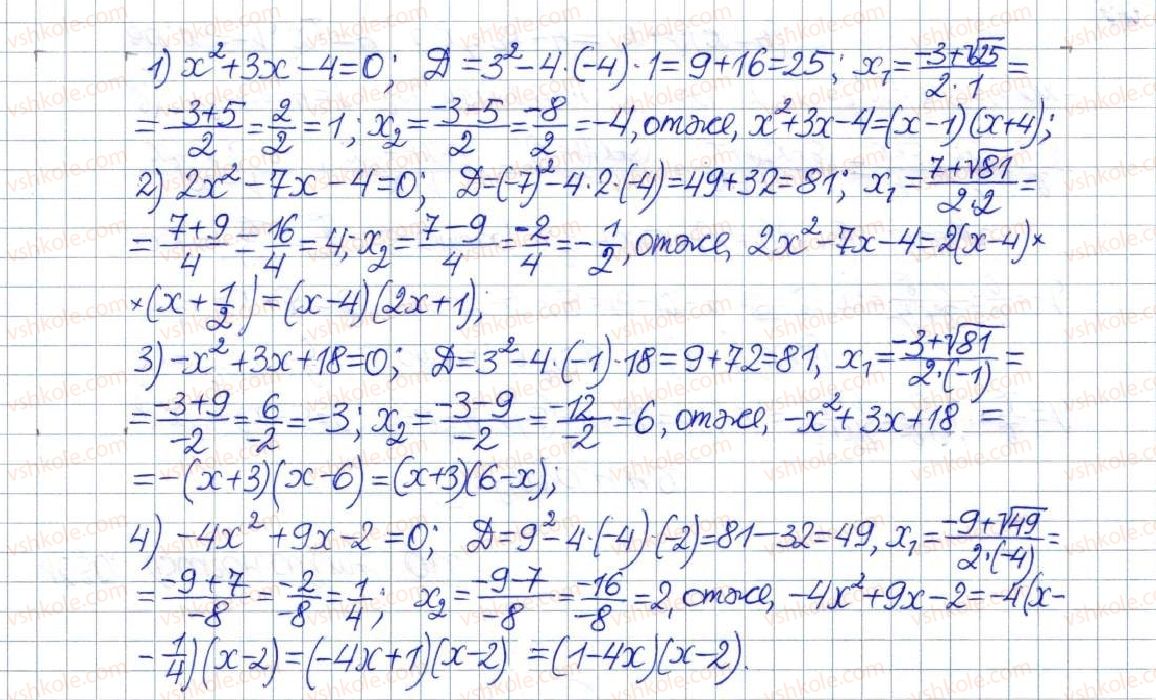 1) x²+3x-4=0; Д=3²-4·(-4)·1=9+16=25; x₁=(-3+√25)/(2·1)=
=(-3+5)/2=2/2=1; x₂=(-3-5)/2=-8/2=-4, отже, x²+3x-4=(x-1)(x+4);
2) 2x²-7x-4=0; Д=(-7)²-4·2·(-4)=49+32=81; x₁=(7+√81)/(2·2)=
=(7+9)/4=16/4=4; x₂=(7-9)/4=-2/4=-1/2, отже, 2x²-7x-4=2(x-4)×
×(x+1/2)=(x-4)(2x+1);
3) -x²+3x+18=0; Д=3²-4·(-1)·18=9+72=81, x₁=(-3+√81)/(2·(-1))=
=(-3+9)/-2=6/-2=-3; x₂=(-3-9)/-2=-12/-2=6, отже, -x²+3x+18=
=-(x+3)(x-6)=(x+3)(6-x);
4) -4x²+9x-2=0; Д=9²-4·(-4)·(-2)=81-32=49, x₁=(-9+√49)/(2·(-4))=
=(-9+7)/-8=-2/-8=1/4; x₂=(-9-7)/-8=-16/-8=2, отже, -4x²+9x-2=-4(x-
-1/4)(x-2)=(-4x+1)(x-2)=(1-4x)(x-2).
vshkole.com